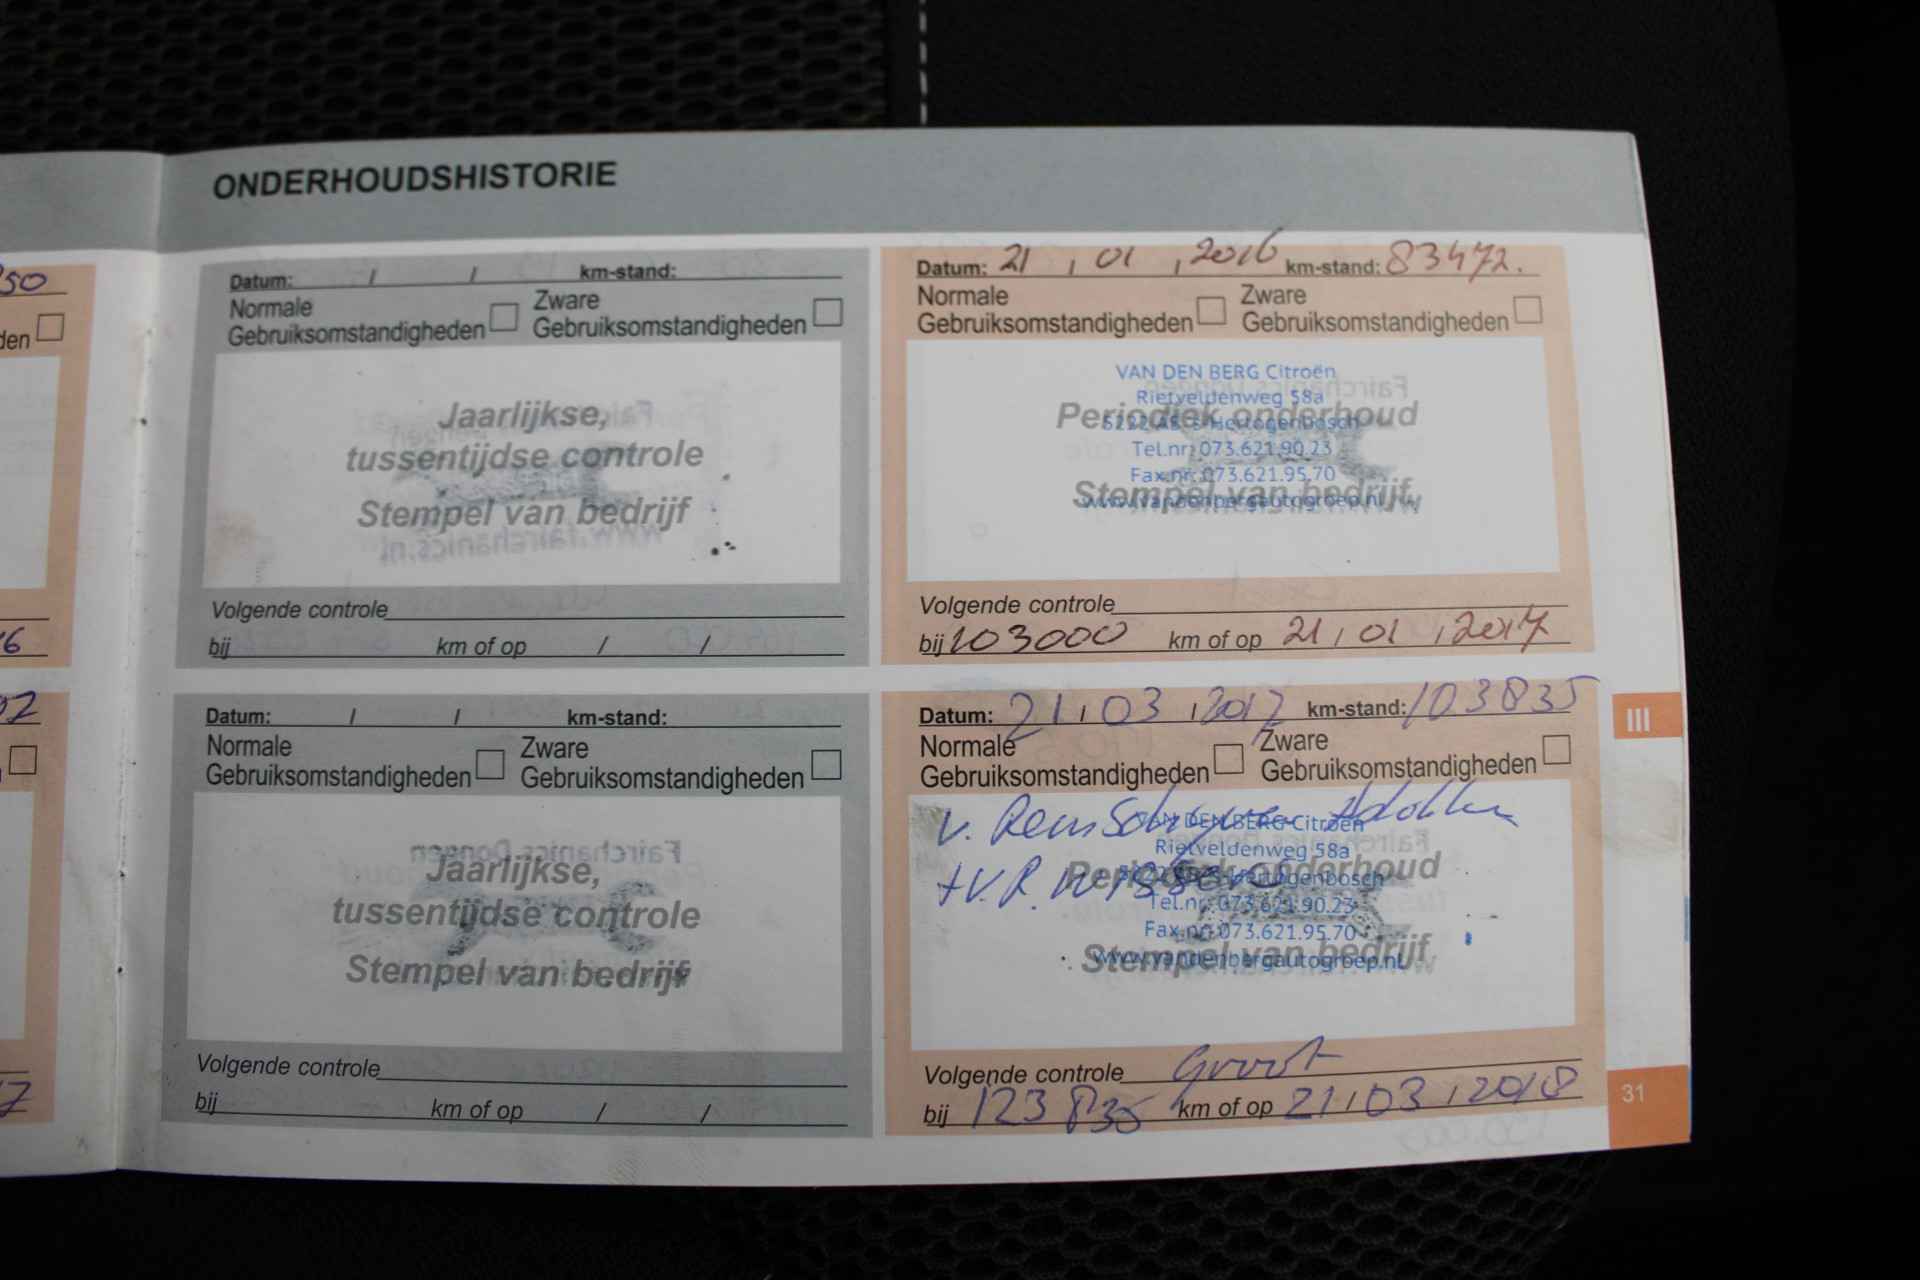 ONDERHOUDSHISTORIE
50
den
Datum: / / km-stand:
Normale Gebruiksomstandigheden
Zware Gebruiksomstandigheden
Jaarlijkse,
tussentijdse controle
Stempel van bedrijf
Volgende controle
bij km of op / /
Datum: 21 / 01 / 2016 km-stand: 83472.
Normale Gebruiksomstandigheden
Zware Gebruiksomstandigheden
VAN DEN BERG Citroën
Rietveldenweg 58a
Periodiek onderhoud
's-Hertogenbosch
Tel.nr: 073.621.90.23
Fax.nr: 073.621.95.70
Stempel van bedrijf
www.vandenbergautogroep.nl
Volgende controle
bij 103000 km of op 21 / 01 / 2017
Datum: / / km-stand:
Normale Gebruiksomstandigheden
Zware Gebruiksomstandigheden
Fairchanics Dongen
Jaarlijkse,
tussentijdse controle
Stempel van bedrijf
Volgende controle
bij km of op / /
Datum: 21 / 03 / 2017 km-stand: 103835
Normale Gebruiksomstandigheden
Zware Gebruiksomstandigheden
VAN DEN BERG Citroën
Rietveldenweg 58a
Periodiek onderhoud
Tel.nr: 073.621.90.23
Fax.nr: 073.621.95.70
Stempel van bedrijf
www.vandenbergautogroep.nl
Volgende controle Groot
bij 123835 km of op 21 / 03 / 2018
III
31